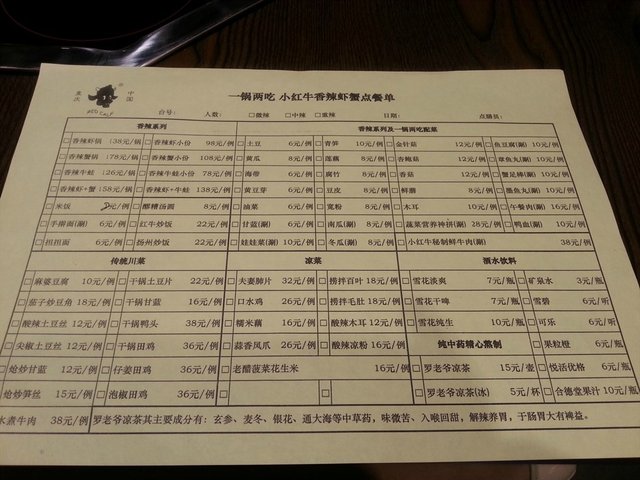 重庆 中国
RED CALF
一锅两吃 小红牛香辣虾蟹点餐单
台号： 人数： □微辣 □中辣 □重辣 日期： 点膳员：
香辣系列 香辣系列及一锅两吃配菜
□香辣虾锅 138元/锅 □香辣虾小份 98元/例 □土豆 6元/例 □青笋 10元/例 □金针菇 12元/例 □鱼豆腐(涮) 10元/例
□香辣蟹锅 178元/锅 □香辣蟹小份 108元/例 □黄瓜 8元/例 □莲藕 8元/例 □杏鲍菇 12元/例 □章鱼丸(涮) 10元/例
□香辣牛蛙 126元/锅 □香辣牛蛙小份 78元/例 □海带 6元/例 □腐竹 8元/例 □香菇 12元/例 □蟹足棒(涮) 10元/例
□香辣虾+蟹 158元/锅 □香辣虾+牛蛙 138元/例 □黄豆芽 6元/例 □豆皮 8元/例 □鲜蘑 8元/例 □墨鱼丸(涮) 10元/例
□米饭 2元/例 □醪糟汤圆 8元/例 □油菜 6元/例 □宽粉 8元/例 □木耳 10元/例 □午餐肉(涮) 16元/例
□手擀面(涮) 6元/例 □红牛炒饭 22元/例 □甘蓝(涮) 6元/例 □南瓜(涮) 8元/例 □蔬菜营养神拼(涮) 28元/例 □鸭血(涮) 10元/例
□担担面 6元/例 □扬州炒饭 22元/例 □娃娃菜(涮) 10元/例 □冬瓜(涮) 8元/例 □小红牛秘制鲜牛肉(涮) 38元/例
传统川菜 凉菜 酒水饮料
□麻婆豆腐 10元/例 □干锅土豆片 22元/例 □夫妻肺片 32元/例 □捞拌百叶 18元/例 □雪花淡爽 7元/瓶 □矿泉水 3元/瓶
□茄子炒豆角 18元/例 □干锅甘蓝 16元/例 □口水鸡 26元/例 □捞拌毛肚 18元/例 □雪花干啤 7元/瓶 □雪碧 6元/听
□酸辣土豆丝 12元/例 □干锅鸭头 38元/例 □糯米藕 16元/例 □酸辣木耳 12元/例 □雪花纯生 10元/瓶 □可乐 6元/听
□尖椒土豆丝 12元/例 □干锅田鸡 36元/例 □蒜香凤爪 26元/例 □酸辣凉粉 16元/例 纯中药精心熬制 □果粒橙 6元/瓶
□炝炒甘蓝 12元/例 □仔姜田鸡 36元/例 □老醋菠菜花生米 16元/例 □罗老爷凉茶 15元/壶 □悦活优格 6元/瓶
□炝炒笋丝 15元/例 □泡椒田鸡 36元/例 □ □ □罗老爷凉茶(冰) 5元/杯 □合德堂果汁 10元/瓶
水煮牛肉 38元/例 罗老爷凉茶其主要成分有：玄参、麦冬、银花、通大海等中草药，味微苦、入喉回甜，解辣养胃，于肠胃大有裨益。